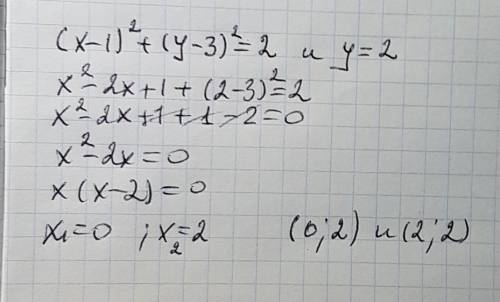 (x-1)² + (y-3)² = 2 и y = 2
x² - 2x + 1 + (2-3)² = 2
x² - 2x + 1 + 1 - 2 = 0
x² - 2x = 0
x (x-2) = 0
x₁ = 0 ; x₂ = 2 (0; 2) и (2; 2)